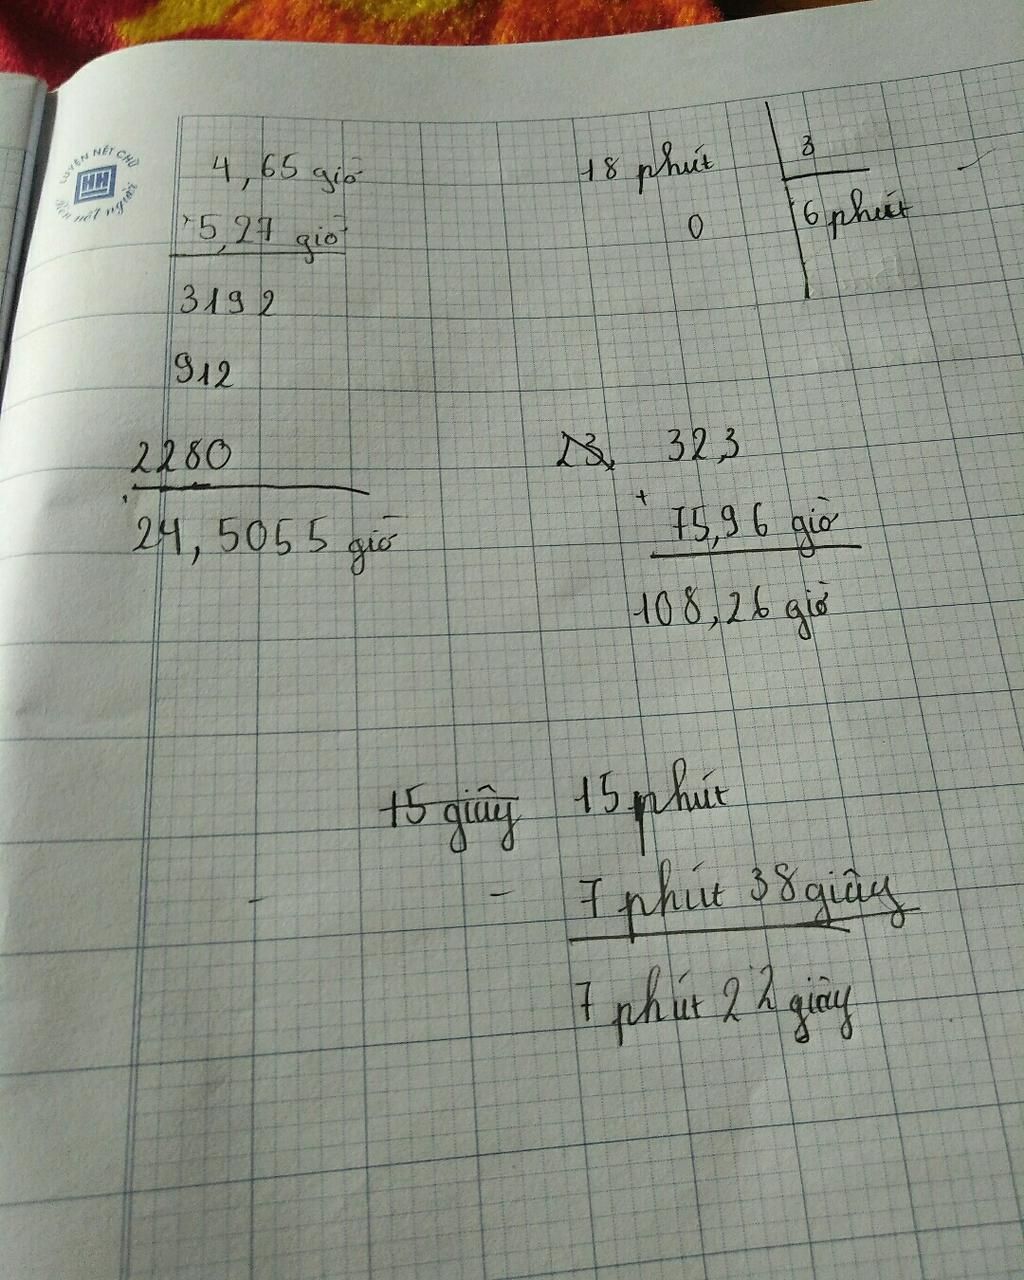 LUYỆN NÉT CHỮ
HH
Rèn nết người
4,65 giờ
× 5,27 giờ
3192
912
2280
24,5055 giờ
18 phút 3
0 6 phút
23, 32,3
+ 75,96 giờ
108,26 giờ
15 giây 15 phút
- - 7 phút 38 giây
7 phút 22 giây